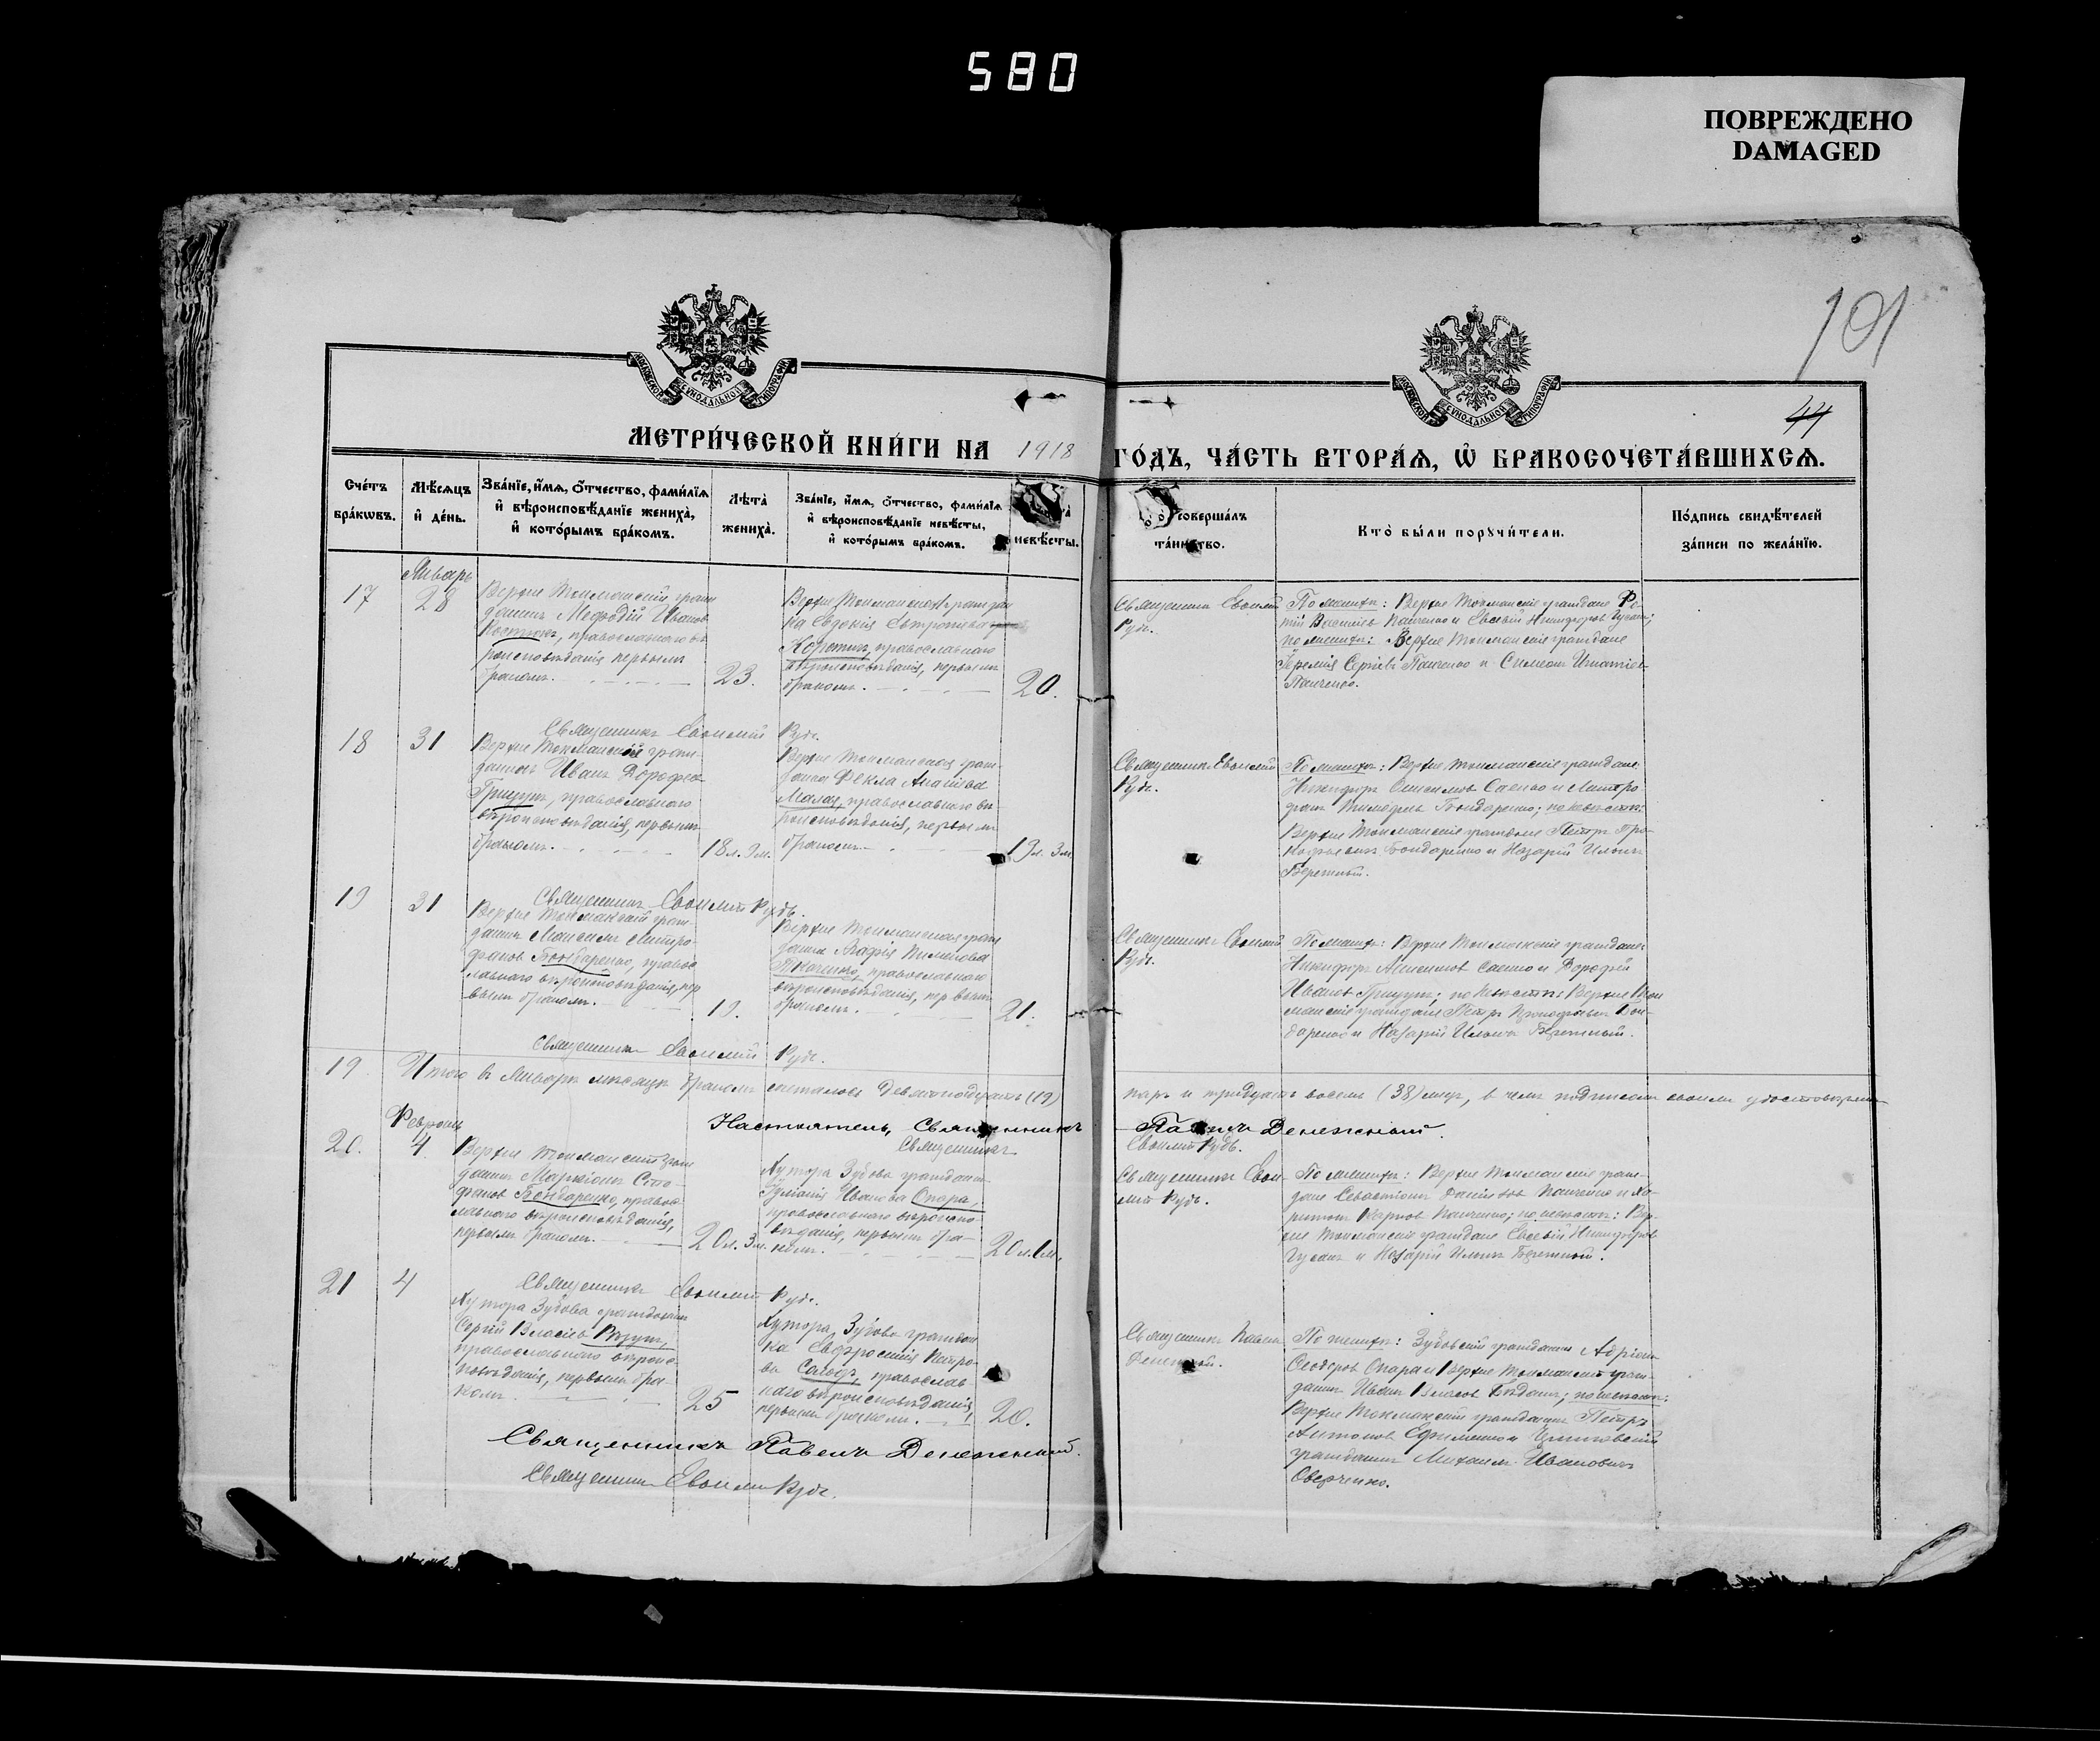 580
ПОВРЕЖДЕНО
DAMAGED
101
44
МЕТРИ́ЧЕСКОЙ КНИ́ГИ НА 1918 ГО́ДЪ, ЧА́СТЬ ВТОРА́Я, Ѡ҆ БРАКОСОЧЕТА́ВШИХСЯ.
Сче́тъ бра́кѡвъ.
Мѣ́сяцъ и҆ де́нь.
Зва́нїе, и҆́мя, ѻ҆́тчество, фами́лїя
и҆ вѣроисповѣ́данїе жениха̀,
и҆ кото́рымъ бра́комъ.
Лѣта̀ жениха̀.
Зва́нїе, и҆́мя, ѻ҆́тчество, фами́лїя
и҆ вѣроисповѣ́данїе невѣ́сты,
и҆ кото́рымъ бра́комъ.
невѣ́сты.
соверша́лъ
та́инство.
Кто̀ бы́ли порꙋчи́тели.
По́дпись свидѣ́телей
за́писи по жела́нїю.
17
Январь
28
Верхне Токмакскій граж
данинъ Меѳодій Ивановъ
Костюкъ, православнаго вѣ
роисповѣданія первымъ
бракомъ.
23.
Верхне Токмакская граждан
ка Евдокія Евтропіева
православнаго
вѣроисповѣданія, первымъ
бракомъ.
20.
Священникъ Евѳимій
Рудь.
По женихѣ: Верхне Токмакскіе граждане
Василій Панченко и Евсевій Никифоровъ Гусакъ;
по невѣстѣ: Верхне Токмакскіе граждане
Іеремія Сергіевъ Панченко и Симеонъ Игнатіевъ
Панченко.
Священникъ Евѳимій Рудь.
18
31
Верхне Токмакскій граж-
данинъ Иванъ Дороѳеевъ
Грицунъ, православнаго
вѣроисповѣданія, первымъ
бракомъ.
18 л. 9 м.
Верхне Токмакская граж-
данка Ѳекла Ананіева
Малая, православнаго вѣ-
роисповѣданія, первымъ
бракомъ.
19 л. 3 м.
Священникъ Евѳимій
Рудь.
По женихѣ: Верхне Токмакскіе граждане:
Никифоръ Онисимовъ Саенко и Митро-
фанъ Бондаренко; по невѣстѣ:
Верхне Токмакскіе граждане Петръ Про-
кофьевичъ Бондаренко и Назарій Ильичъ
Бережный.
Священникъ Евѳимій Рудь.
19
31
Верхне Токмакскій граж-
данинъ Максимъ Митро-
фановъ Бондаренко, правос
лавнаго вѣроисповѣданія, пер
вымъ бракомъ.
19.
Верхне Токмакская граж
данка Агафія Пименова
Ткаченко, православнаго
вѣроисповѣданія, первымъ
бракомъ.
21.
Священникъ Евѳимій
Рудь.
По женихѣ: Верхне Токмакскіе граждане:
Никифоръ Онисимовъ Саенко и Дороѳей
Ивановъ Грицунъ; по невѣстѣ: Верхне Ток
макскіе граждане Петръ Прокофьевъ Бон-
даренко и Назарій Ильичъ Бережный.
Священникъ Евѳимій Рудь.
19. Итого въ Январѣ мѣсяцѣ бракомъ сочеталось девятнадцать (19)
паръ и тридцать восемь (38) лицъ, въ чемъ подписомъ своимъ удостовѣряемъ
Настоятель, Священникъ Павелъ Денежный.
Священникъ Евѳимій Рудь.
Февраль
20.
4
Верхне Токмакскій граж
данинъ Маркіонъ Сте-
фановъ Бондаренко, правос
лавнаго вѣроисповѣданія,
первымъ бракомъ.
20 л. 3 м.
Хутора Зубова гражданка
Іуліанія Иванова Опара,
православнаго вѣроиспо-
вѣданія, первымъ бра-
комъ.
20 л. 1 м.
Священникъ Евѳи-
мій Рудь.
По женихѣ: Верхне Токмакскіе граж-
дане Севастіанъ Даніиловъ Панченко и Ха-
ритонъ Карповъ Панченко; по невѣстѣ: Верх-
не Токмакскіе граждане Евсевій Никифоровъ
Гусакъ и Назарій Ильичъ Бережный.
Священникъ Евѳимій Рудь.
21
4
Хутора Зубова гражданинъ
Сергій Власіевъ
православнаго вѣроис-
повѣданія, первымъ бра-
комъ.
25
Хутора Зубова граждан
ка Евфросинія Петро-
ва православ
наго вѣроисповѣданія,
первымъ бракомъ.
20.
Священникъ Павелъ
Денежный.
По женихѣ: Зубовскій гражданинъ Адріанъ
Ѳеодоровъ Опара и Верхне Токмакскій граж-
данинъ Иванъ Власовъ; по невѣстѣ:
Верхне Токмакскій гражданинъ Петръ
Антоновъ Ефименко и
гражданинъ Михаилъ Ивановичъ
Оверченко.
Священникъ Павелъ Денежный.
Священникъ Евѳимій Рудь.